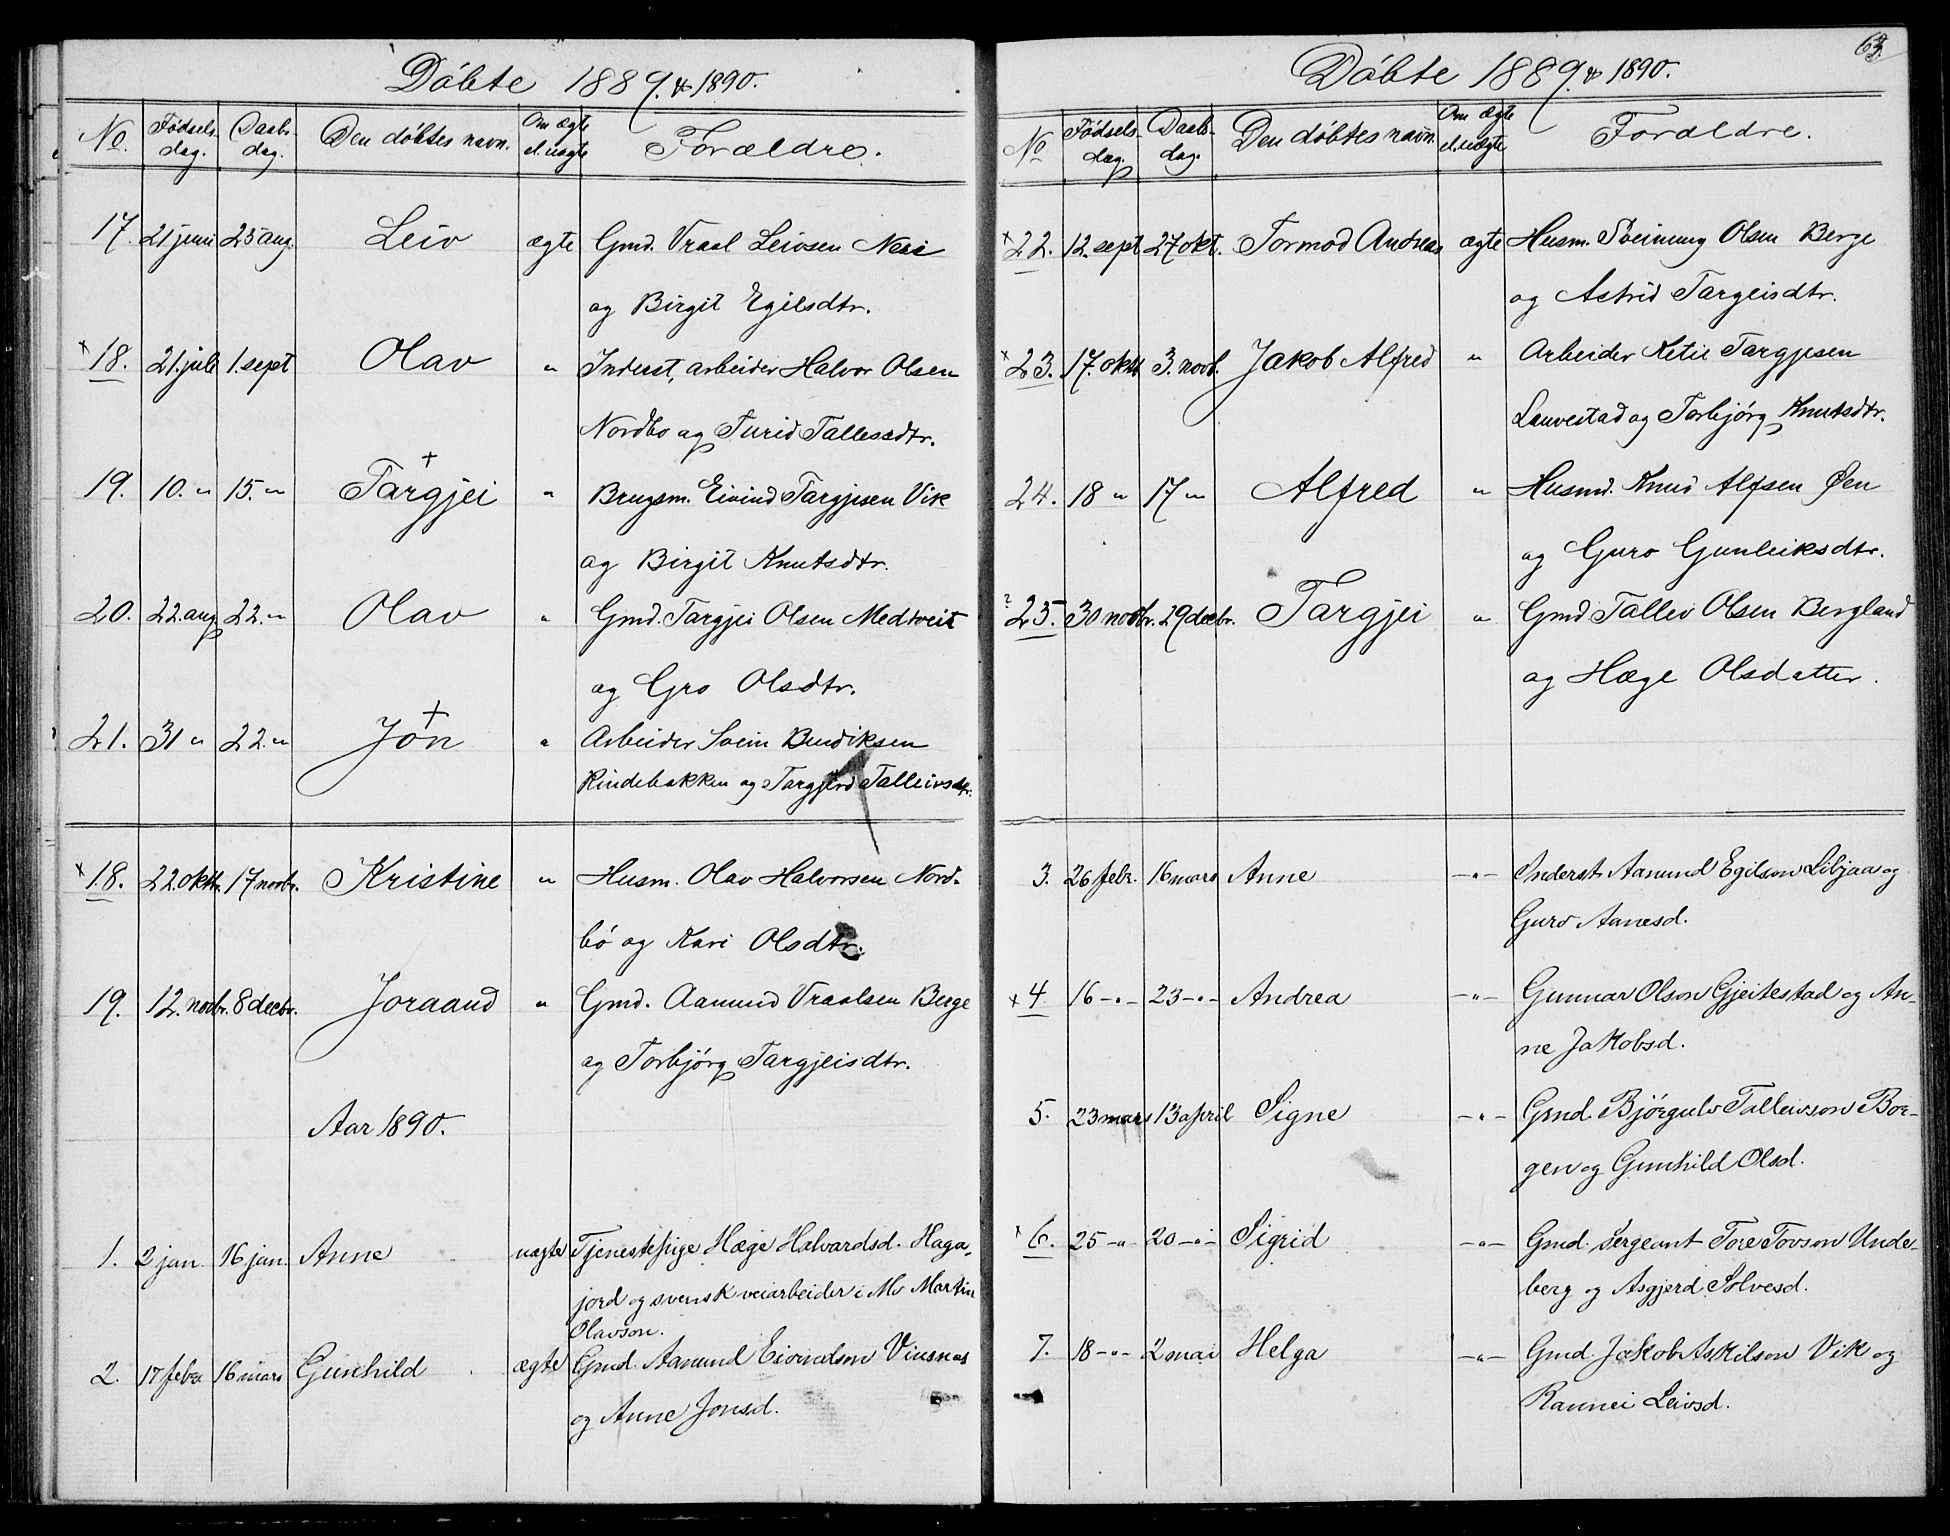 Döbte 1889. & 1890.
No. Fødsels-dag. Daabs-dag. Den döbtes navn. Om ægte el. uægte Forældre.
17. 21 juni 25 aug. Leiv ægte Gmd. Vraal Leivsen Nesi
og Birgit Egilsdtr.
× 18. 21. juli 1. sept Olav " Inderst, arbeider Halvor Olsen
Nordbo og Turid Tallessdtr.
19. 10. " 15. " Targjei + " Brugsm. Eivind Targjesen Vik
og Birgit Knutsdtr.
20. 22. aug 22. " Olav " Gmd. Targjei Olsen Medtveit
og Gro Olsdtr.
21. 31 " 22. " Jon + " Arbeider Svein Bendiksen
Rindebakken og Targjerd Talleivsdtr.
× 18. 22. oktr. 17 novbr. Kristine " Husm. Olav Halvorsen Nord-
bö og Kari Olsdtr.
19. 12. novbr. 8 decbr. Joraand " Gmd. Aamund Vraalsen Berge
og Torbjörg Targjeisdtr.
Aar 1890.
1. 2 jan. 16 jan. Anne uægte Tjenestepige Hæge Halvardsd. Haga-
jord og svensk veiarbeider i Mo Martin
Olavson.
2. 17 febr. 16 mars Gunhild ægte Gmd. Aamund Eivindson Vinsnes
og Anne Jonsd.
63.
Döbte 1889. & 1890.
No Fødsels-dag. Daab-dag. Den döbtes navn. Om ægte el. uægte Forældre.
× 22. 12. sept 27 okt. Tormod Andreas ægte Husm. Sveinung Olsen Berge
og Astrid Targeisdtr.
× 23. 17. oktb 3. novb. Jakob Alfred " Arbeider Ketil Targjesen
Lauvestad og Torbjörg Knutsdtr.
24. 18 " 17 " Alfred " Husmd. Knud Alfsen Øen
og Guro Gunleiksdtr.
? 25. 30 novbr. 29 decbr. Targjei " Gmd Tallev Olsen Bergland
og Hæge Olsdatter.
3. 26 febr. 16 mars Anne -"- Inderst Aamund Egilson Libjaa og
Guro Aanesd.
× 4 16 -"- 23 -"- Andrea -"- Gunnar Olson Gjeitestad og An-
ne Jakobsd.
5. 23 mars 13 april Signe -"- Gmd. Bjørgulv Talleivson Bor-
gen og Gunhild Olsd.
× 6. 25 -"- 20 -"- Sigrid -"- Gmd. Sergeant Tore Tovson Unde-
berg og Asgjerd Solvesd.
7. 18 -"- 2 mai Helga -"- Gmd. Jakob Askilson Vik og
Rannei Leivsd.